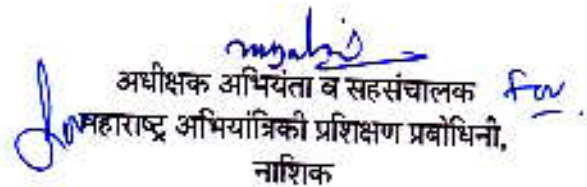 अधीक्षक अभियंता व सहसंचालक For
महाराष्ट्र अभियांत्रिकी प्रशिक्षण प्रबोधिनी,
नाशिक